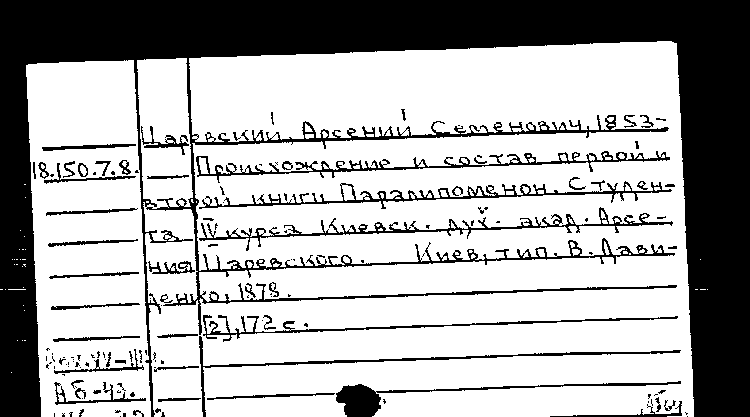 Царевский, Арсений Семенович, 1853-
18.150.7.8. Происхождение и состав первой и
второй книги Паралипоменон. Студен-
та IV курса Киевск. дух. акад. Арсе-
ния Царевского. Киев, тип. В. Дави-
денко, 1878.
[2], 172 с.
АБ-43.